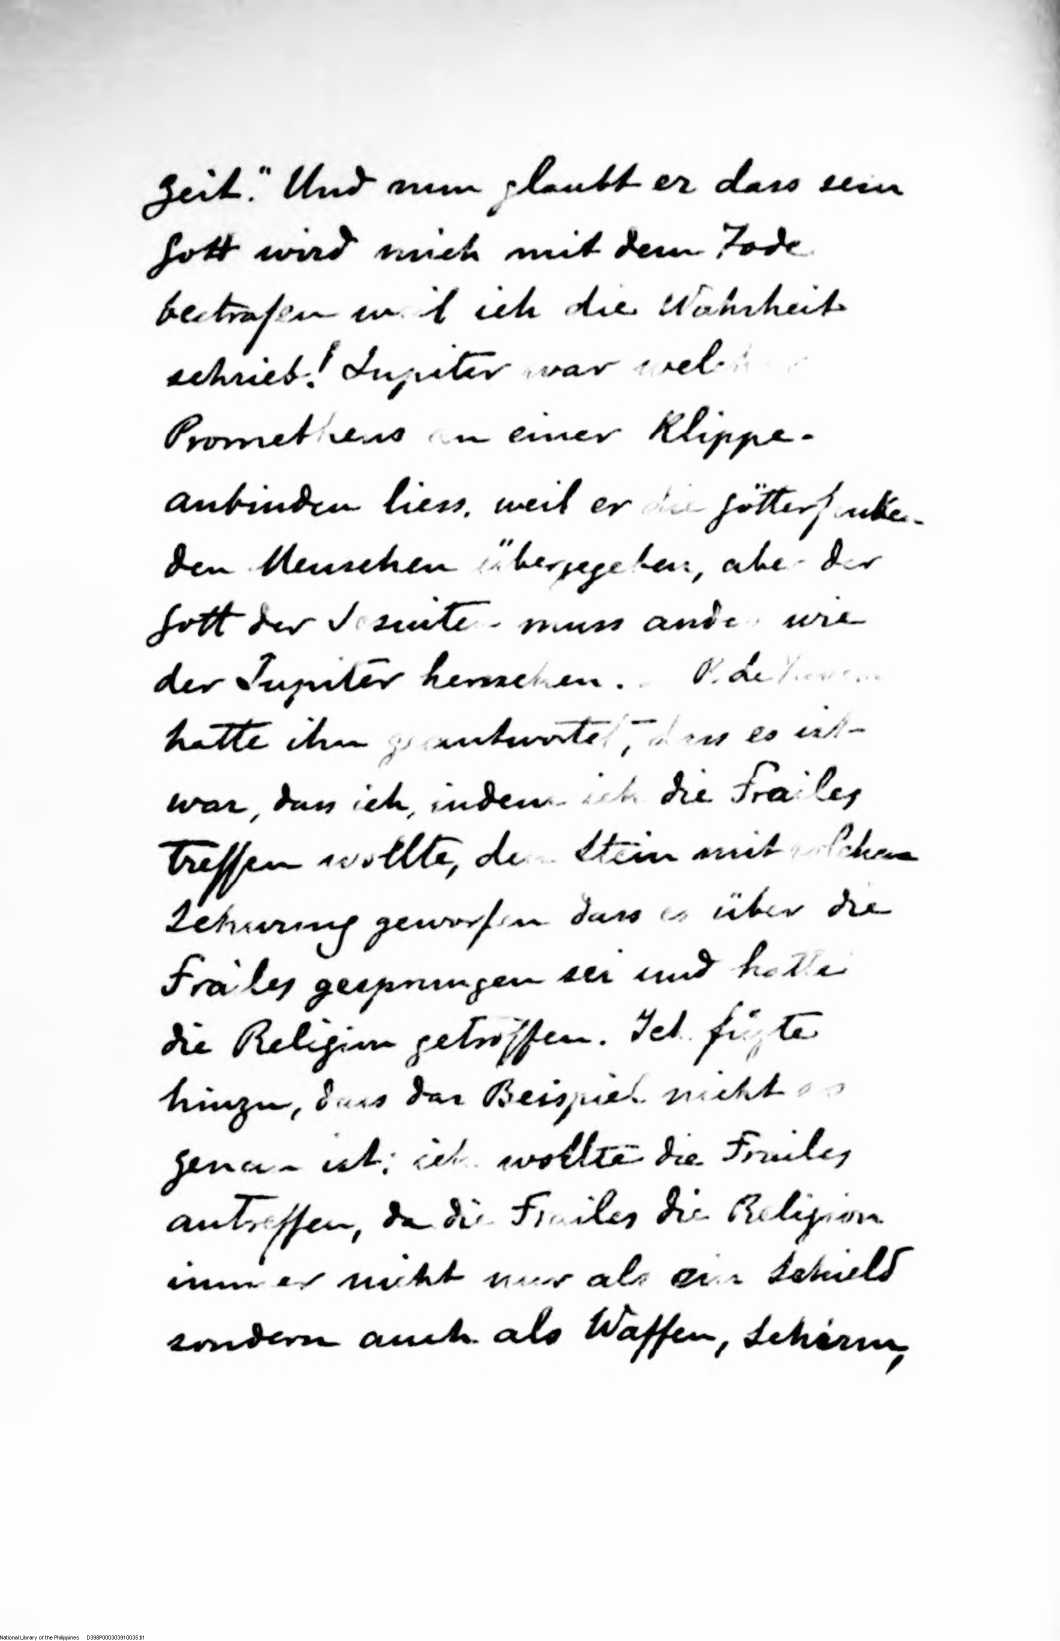 Zeit." Und nun glaubt er dass sein
Gott wird mich mit dem Tode
bestrafen weil ich die Wahrheit
schrieb! Jupiter war welcher
Prometheus an einer Klippe
anbinden liess, weil er die Götterfunke
den Menschen übergegeben, aber der
Gott der Jesuiten muss ander wie
der Jupiter herrschen. P.
hatte ihm geantwortet, dass es ist
war, dass ich, indem ich die Frailes
treffen wollte, den Stein mit solchem
Schwung geworfen dass es über die
Frailes gesprungen sei und hatte
die Religion getroffen. Ich fügte
hinzu, dass das Beispiel nicht so
genau ist; ich wollte die Frailes
antreffen, da die Frailes die Religion
immer nicht nur als ein Schield
sondern auch als Waffen, Schirm,
National Library of the Philippines